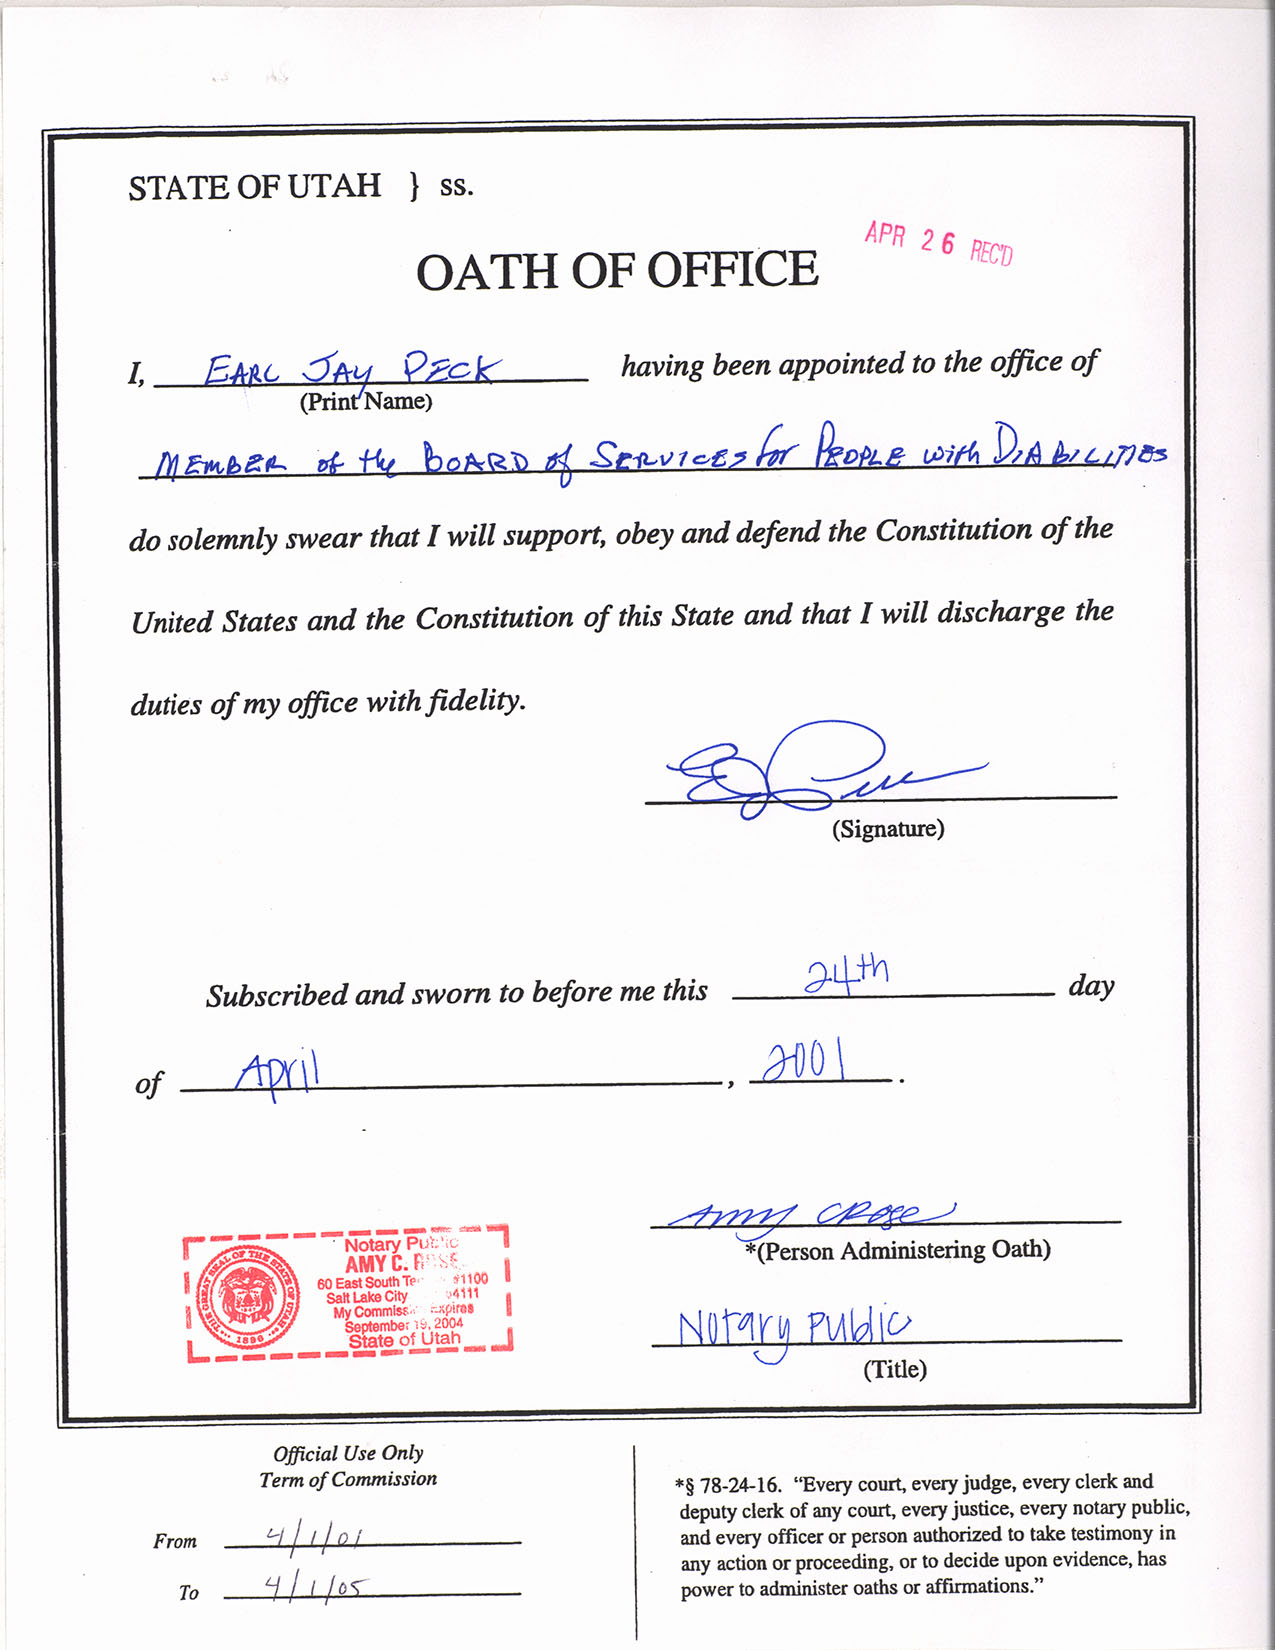 STATE OF UTAH } ss.
APR 26 REC'D
OATH OF OFFICE
I, EARL JAY PECK having been appointed to the office of
(Print Name)
MEMBER of the BOARD of SERVICES for PEOPLE with DIABILITIES
do solemnly swear that I will support, obey and defend the Constitution of the
United States and the Constitution of this State and that I will discharge the
duties of my office with fidelity.
(Signature)
Subscribed and sworn to before me this 24th day
of April, 2001.
Amy C Rose
*(Person Administering Oath)
Notary Public
(Title)
THE GREAT SEAL OF THE STATE OF UTAH
1896
Notary Public
AMY C. ROSE
60 East South Te 1100
Salt Lake City 84111
My Commission Expires
September 19, 2004
State of Utah
Official Use Only
Term of Commission
From 4/1/01
To 4/1/05
*§ 78-24-16. “Every court, every judge, every clerk and
deputy clerk of any court, every justice, every notary public,
and every officer or person authorized to take testimony in
any action or proceeding, or to decide upon evidence, has
power to administer oaths or affirmations.”